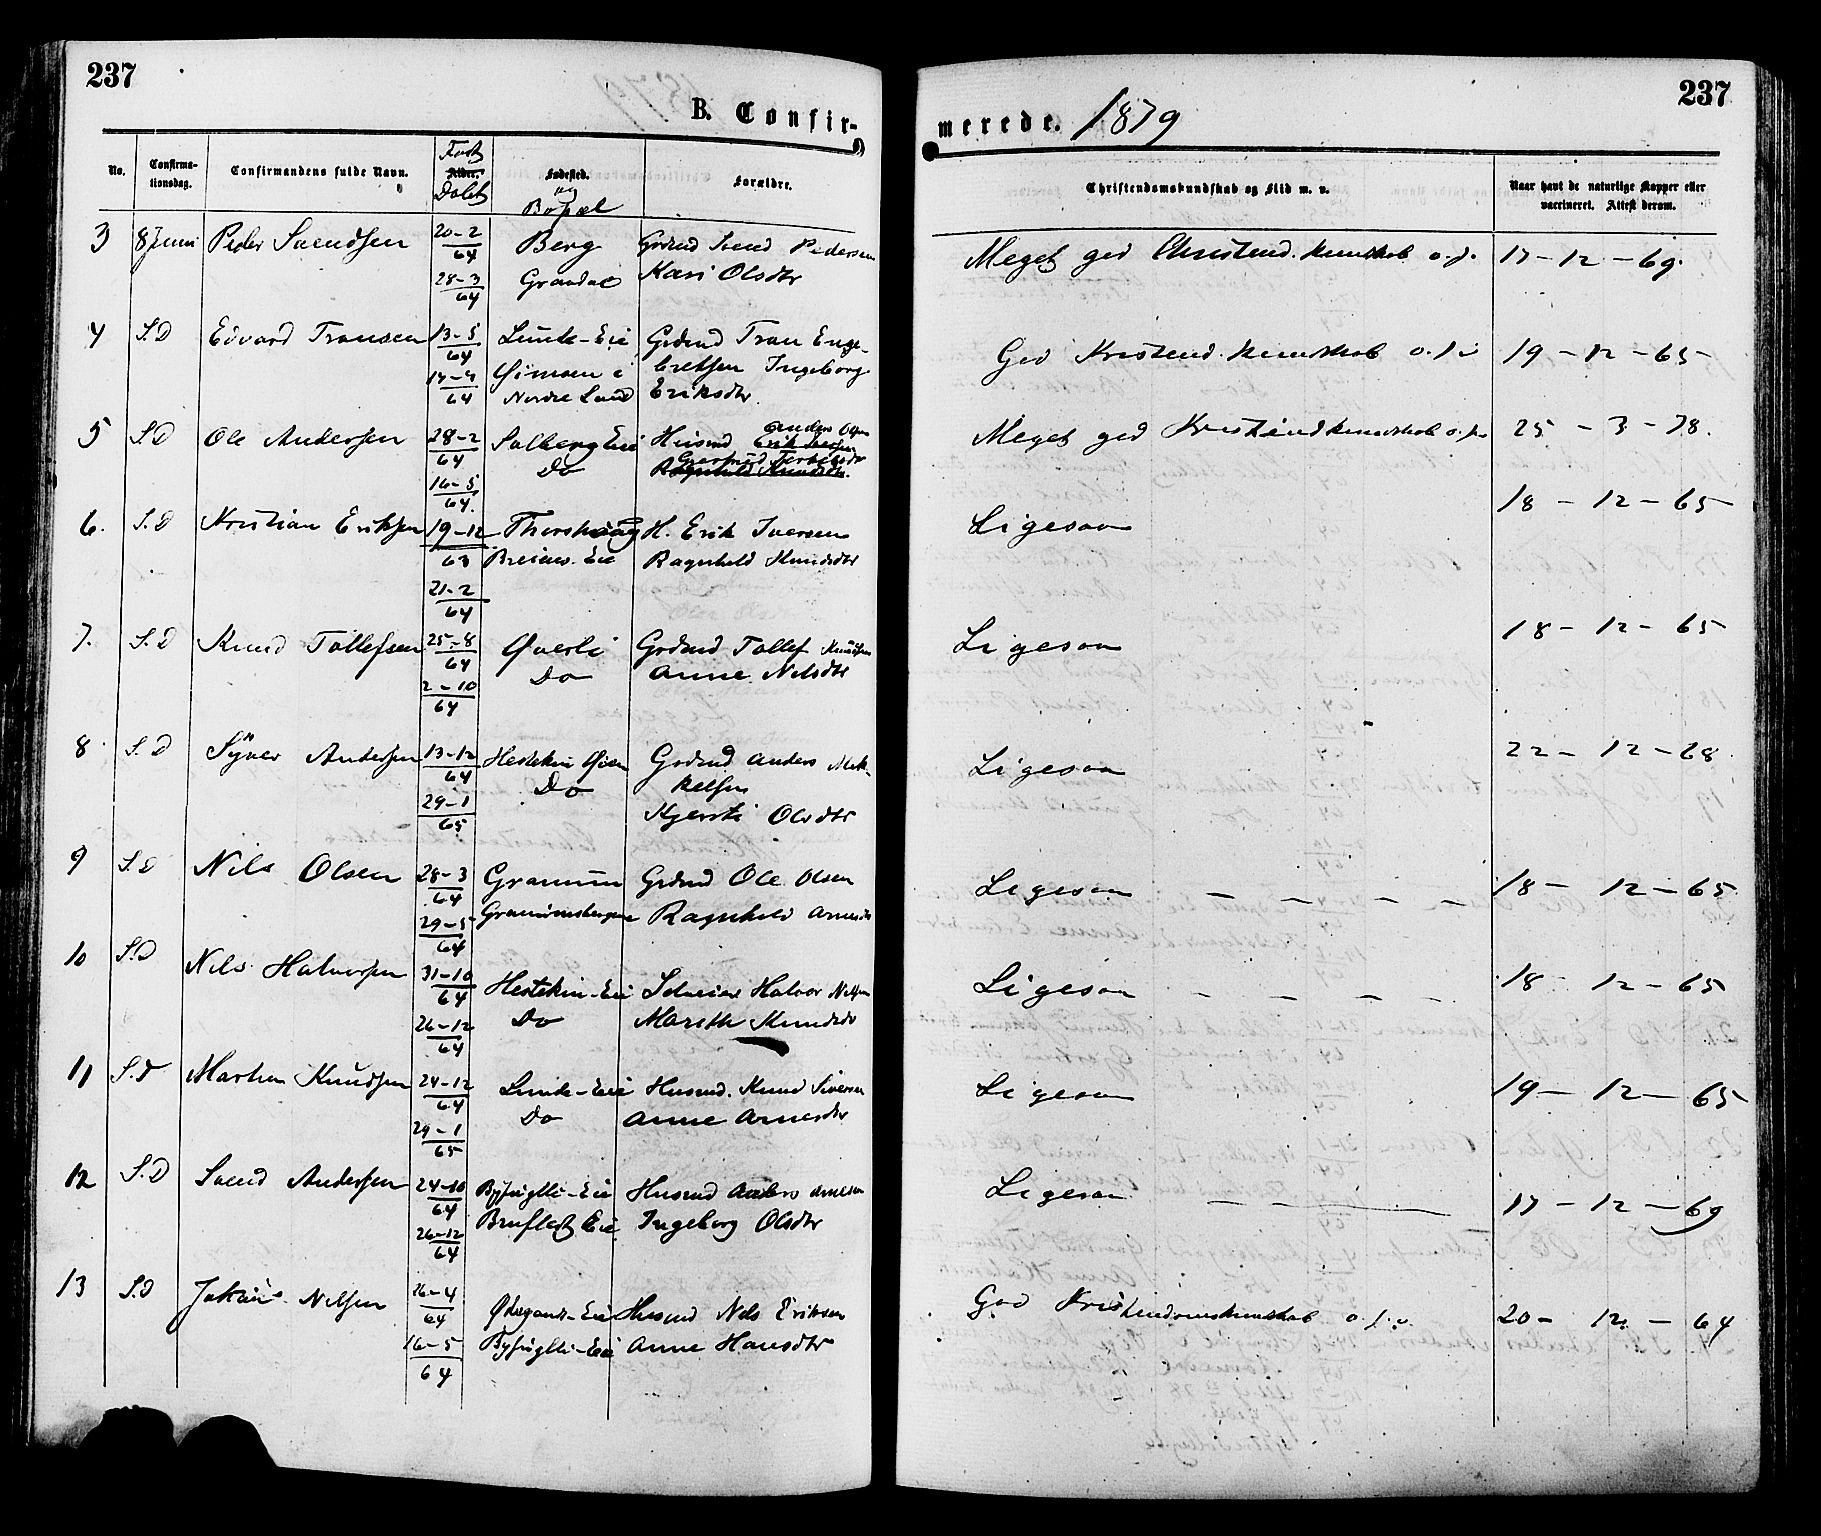 237
B. Confir-
merede. 1879
237
No.
Confirma-
tionsdag.
Confirmandens fulde Navn.
Født
Alder.
Døbt
Fødested.
og
Bopæl
Forældre.
Christendomskundskab og Flid m. v.
Naar havt de naturlige Kopper eller
vaccineret. Attest derom.
3 8 Juni Peder Svendsen 20-2/64 Berg Grdmd Svend Pedersen Meget god Christend. kundskab o.f. 17-12-69.
28-3/64 Grandal Kari Olsdtr
4 S.D Edvard Transen 13-5/64 Lunde-Eie Grdmd Tran Enge- God Kristend. kundskab o.f.v 19-12-65
17-7/64 i bretsen Ingeborg
Nordre Land Eriksdtr.
5 S.D Ole Andersen 28-2/64 Solberg Eie Husmd Anders Olsen Meget god Kristendkundskab o.f.v 25-3-78.
Erik Iversen
16-5/64 Do Gjertrud
Ragnhild Knudsdtr.
6. S.D Kristian Eriksen 19-12/63 Thorshaug H. Erik Iversen Ligesaa 18-12-65
21-2/64 Eie Ragnhild Knudsdtr
7. S.D Knud Tollefsen 25-8/64 Øverli Grdmd Tollef Knudsen Ligesaa 18-12-65
2-10/64 Do Anne Nilsdtr
8 S.D Syver Andersen 13-12/64 Hestekin Øien Grdmd Anders Mik- Ligesaa 22-12-68
29-1/65 Do kelsen
Kjersti Olsdtr
9 S.D Nils Olsen 28-3/64 Granum Grdmd Ole Olsen Ligesaa — — — — 18-12-65
29-5/64 Ragnhild Arnesdtr
10 S.D Nils Halvorsen 31-10/64 Hestekin-Eie Halvor Nilsen Ligesaa — — — — 18-12-65
26-12/64 Do Marith Knudsdtr
11 S.D Marten Knudsen 24-12/64 Lunde-Eie Husmd. Knud Siversen Ligesaa 19-12-65
29-1/65 Do Anne Arnesdtr
12 S.D Svend Andersen 24-10/64 Byfuglli-Eie Husmd Anders Arnesen Ligesaa — — — 17-12-69
26-12/64 Bruflat Eie Ingeborg Olsdtr
13 S.D Johan Nilsen 26-4/64 Husmd Nils Eriksen God Kristendomskundskab o.f.v. 20-12-64
16-5/64 Byfuglli-Eie Anne Hansdtr